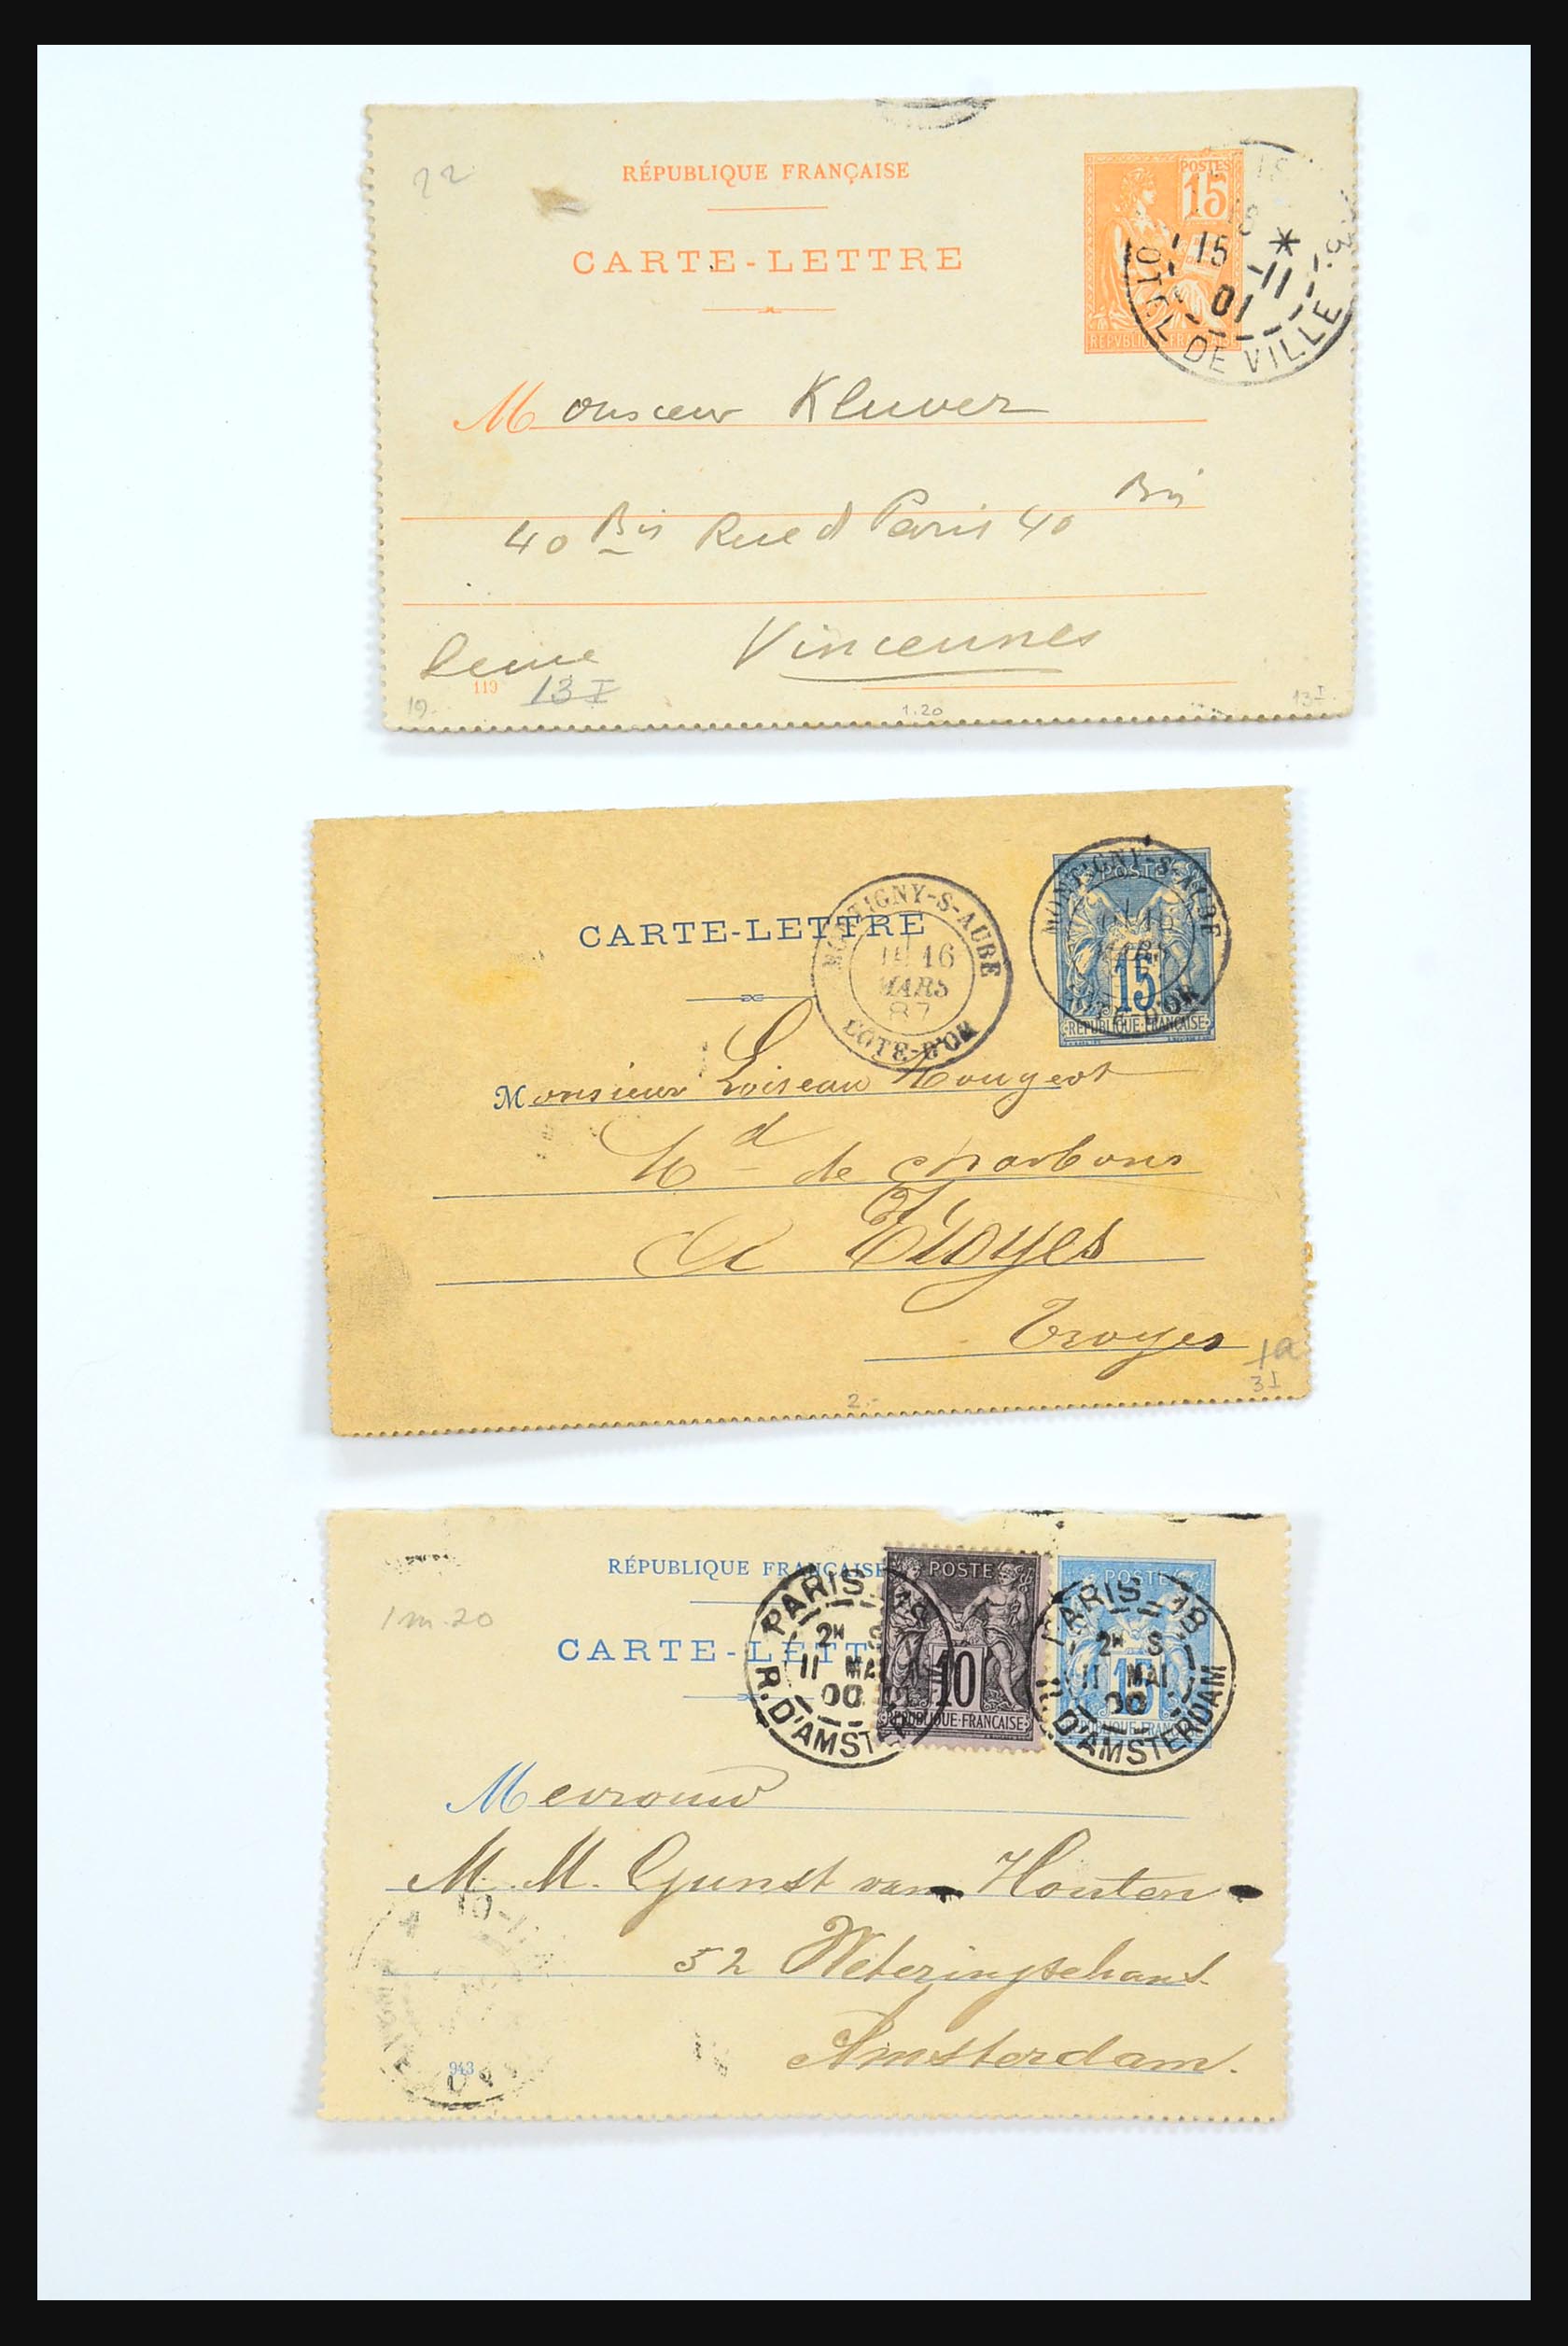 22
RÉPUBLIQUE FRANÇAISE
CARTE-LETTRE
POSTES
15
REPVBLIQVE FRANÇAISE
15
11
01
OTEL DE VILLE
Monsieur Kluver
40 Bis Rue d Paris 40 Bis
Seine Vincennes
119
13 I
19.
1.20
13 I
CARTE-LETTRE
MONTIGNY-S-AUBE
16
MARS
87
COTE-D'OR
POSTES
MONTIGNY-S-AUBE
16
MARS
15
COTE-D'OR
RÉPUBLIQUE FRANÇAISE
Monsieur Loiseau Mougeot
Md de charbons
à Troyes
Troyes
1a
3 I
2.-
RÉPUBLIQUE FRANÇAISE
1m.20
CARTE-LETT
PARIS 18
2E S
11 MAI
00
R. D'AMSTER
POSTES
10
RÉPUBLIQUE FRANÇAISE
POSTES
PARIS 18
2E S
11 MAI
15
00
R. D'AMSTERDAM
Mevrouw
M. M. Gunst van Houten
52 Weteringschans
Amsterdam.
943